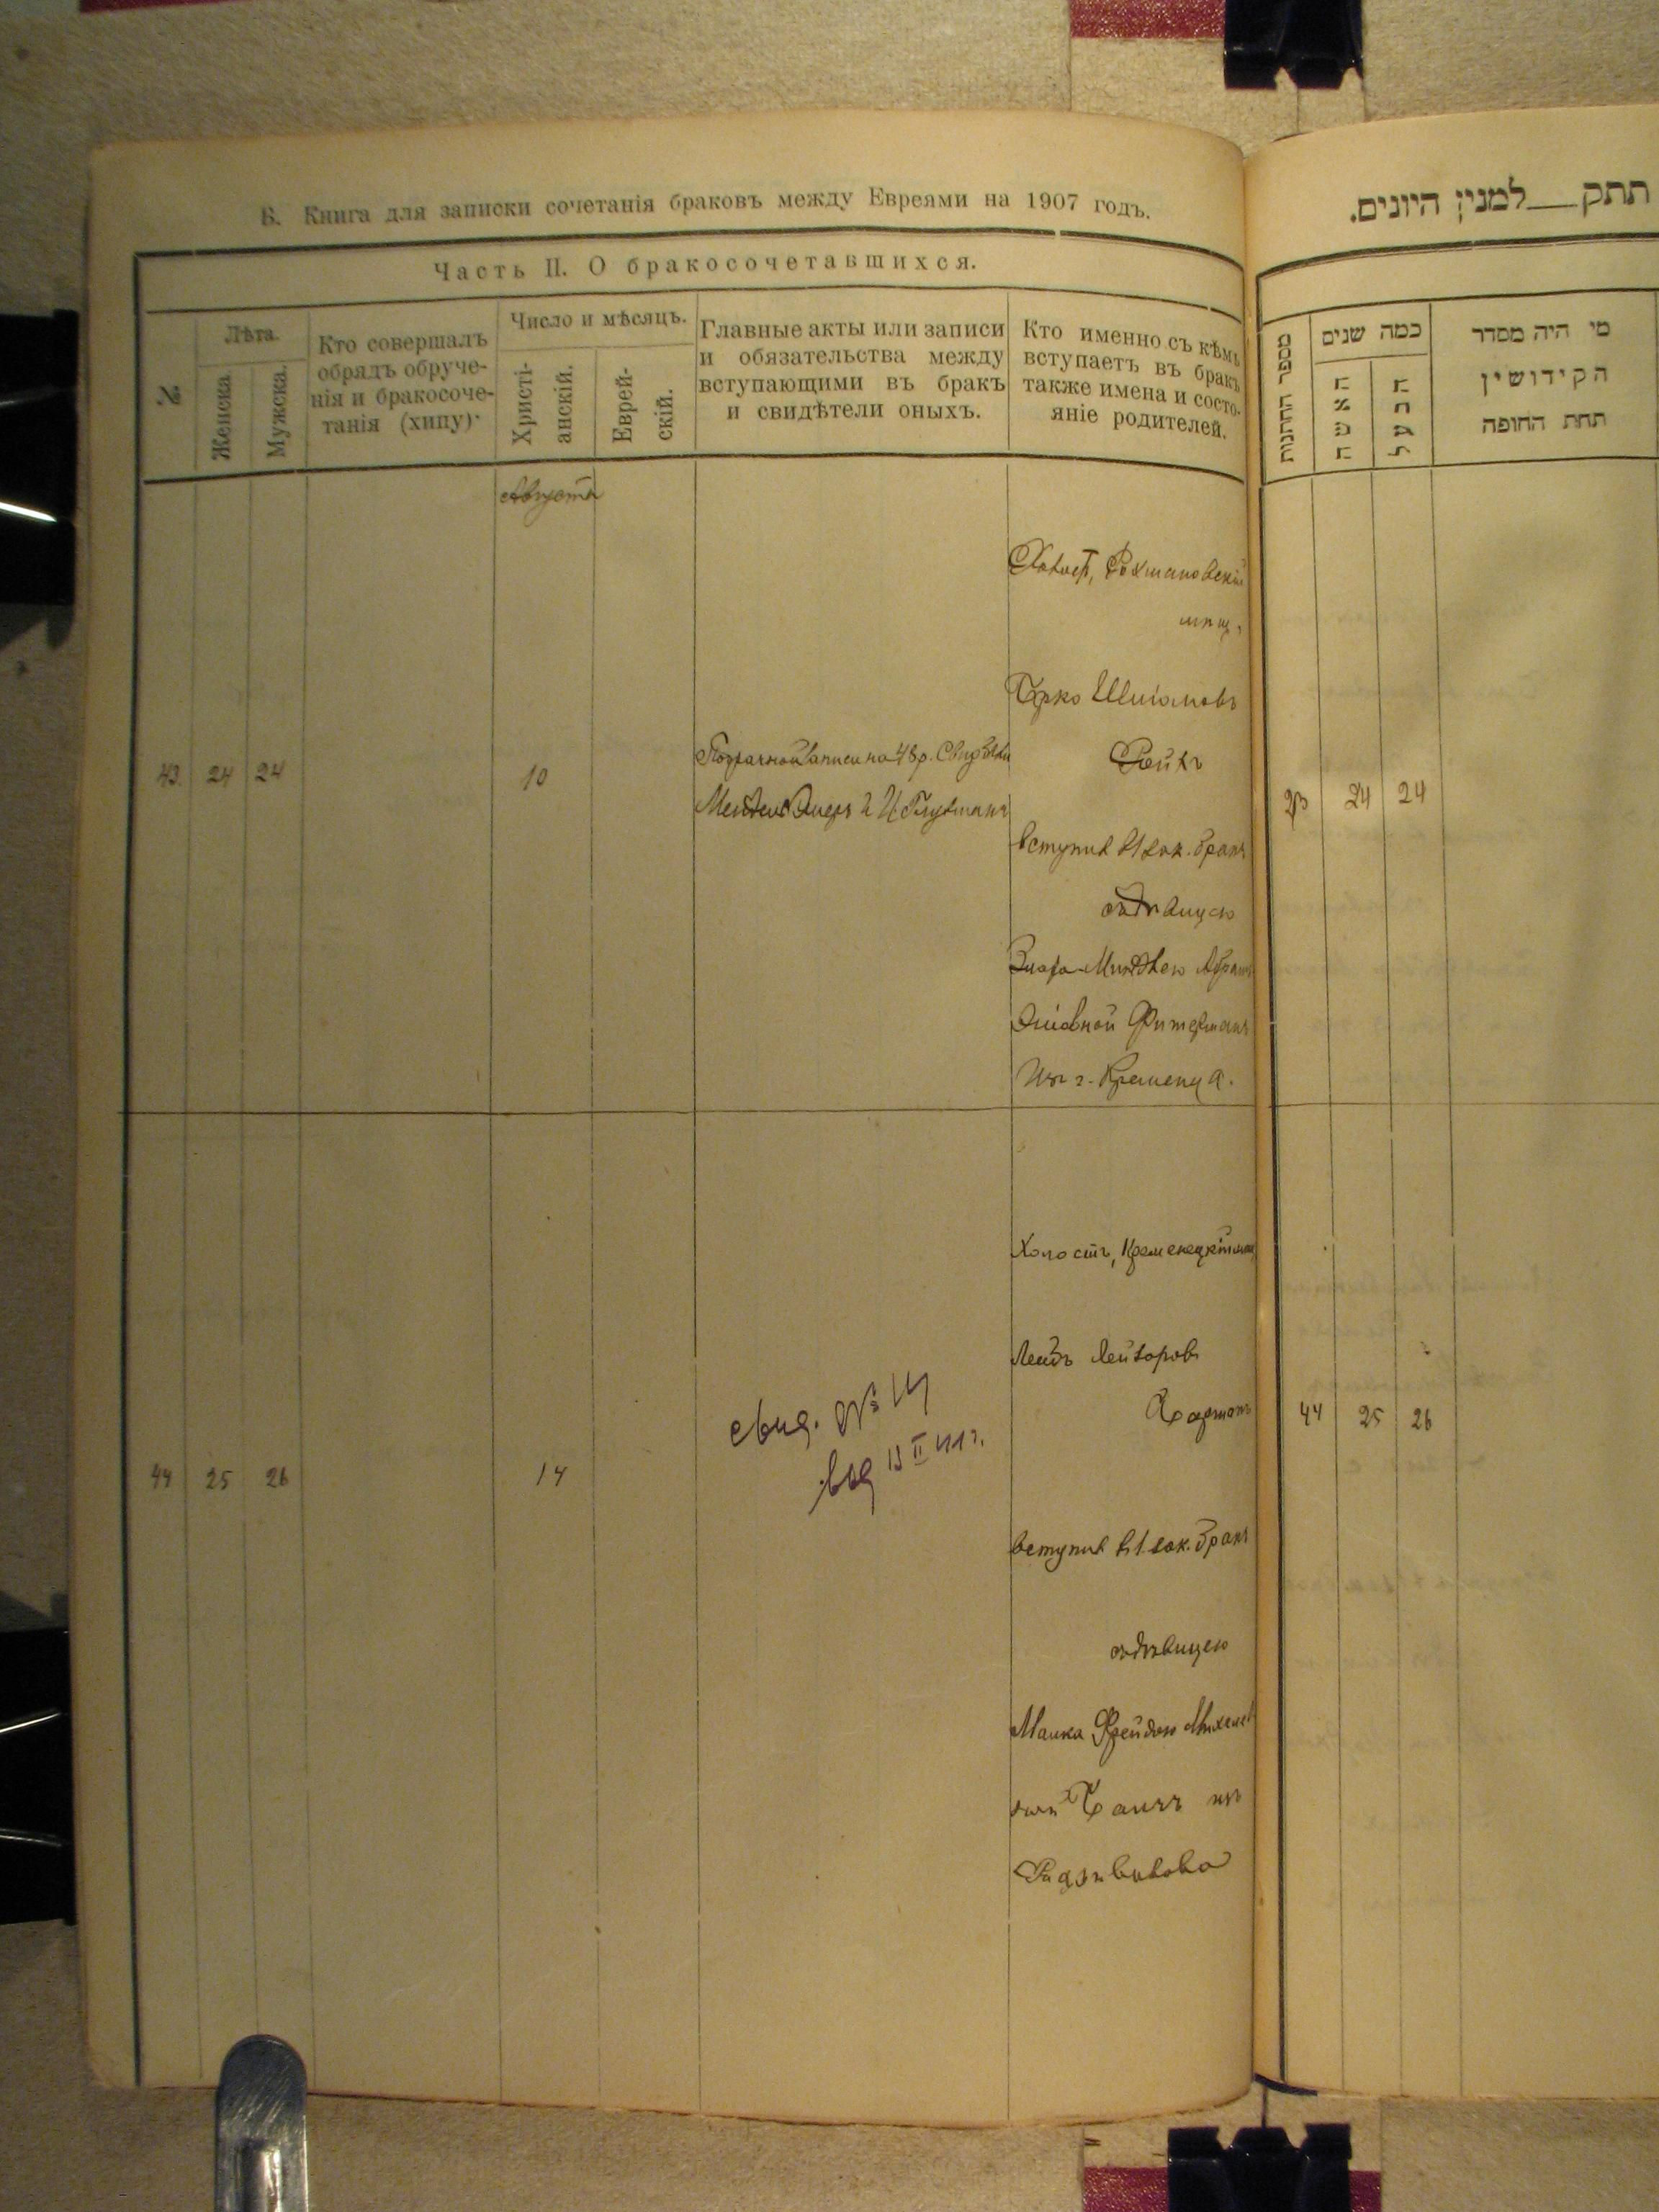 Б. Книга для записки сочетанія браковъ между Евреями на 1907 годъ.
Часть II. О бракосочетавшихся.
№
Лѣта.
Женска
Мужска.
Кто совершалъ
обрядъ обруче-
нія и бракосоче-
танія (хипу).
Число и мѣсяцъ.
Христі-
анскій.
Еврей-
скій.
Главные акты или записи
и обязательства между
вступающими въ бракъ
и свидѣтели оныхъ.
Кто именно съ кѣмъ
вступаетъ въ бракъ
также имена и состо-
яніе родителей.
Августа
43. 24 24
10
записи на 48 р.
Холост, Рохмановскій
мѣщ.
Берко
вступил в 1 зак. бракъ
съ дѣвицею
Абрам
Фитерманъ
Изъ г. Кременца.
44 25 26
14
свид. № 14
выд 13 II 1911 г.
Холостъ, Кременецкій мѣщ
Лейзоровъ
вступил в 1 зак. бракъ
съ дѣвицею
Малка Фрейдою Михелев
изъ
Радзивилова
תתק___למנין היונים.
מספר החתנות
כמה שנים
האשה
הבעל
מי היה מסדר
הקידושין
תחת החופה
43 24 24
44 25 26